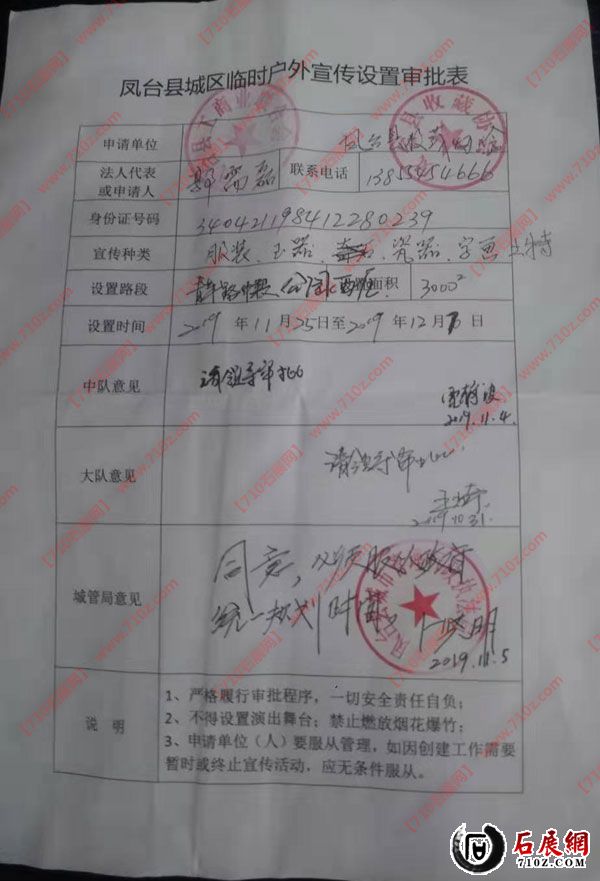 凤台县城区临时户外宣传设置审批表
申请单位
凤台县收藏协会
法人代表
或申请人
联系电话
13855454666
身份证号码
340421198412280239
宣传种类
服装、玉器、瓷器、字画土特
设置路段
面积
3000²
设置时间
2019年11月25日至2019年12月
日
中队意见
请领导审批
2019.11.4.
大队意见
请领导审批
2019.10.31.
城管局意见
同意,必须服从政府
统一规划时间。
2019.11.5
说 明
1、严格履行审批程序,一切安全责任自负;
2、不得设置演出舞台;禁止燃放烟花爆竹;
3、申请单位(人)要服从管理,如因创建工作需要
暂时或终止宣传活动,应无条件服从。
【710石展网】www.710z.com
石展網
710z.COM